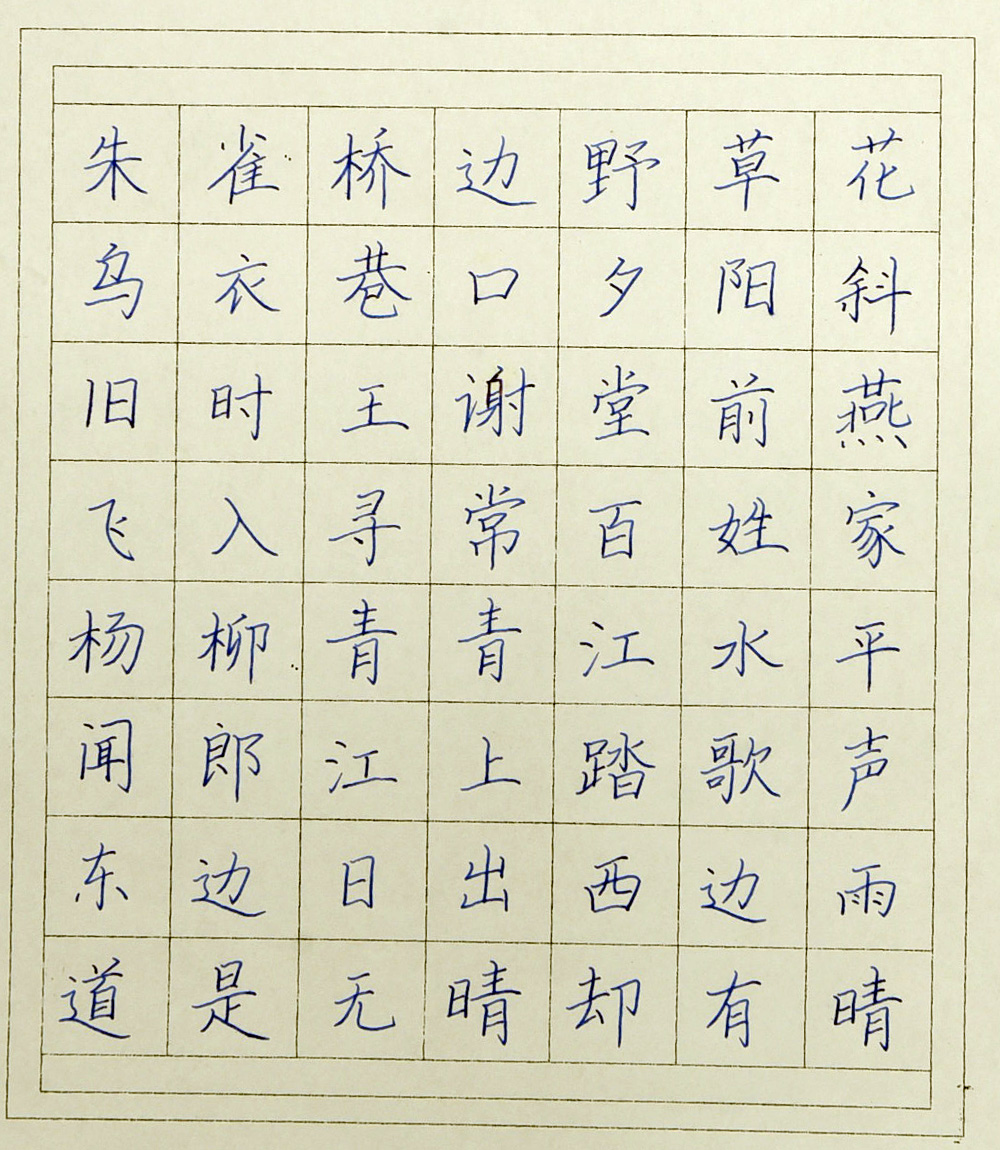 朱雀桥边野草花
乌衣巷口夕阳斜
旧时王谢堂前燕
飞入寻常百姓家
杨柳青青江水平
闻郎江上踏歌声
东边日出西边雨
道是无晴却有晴